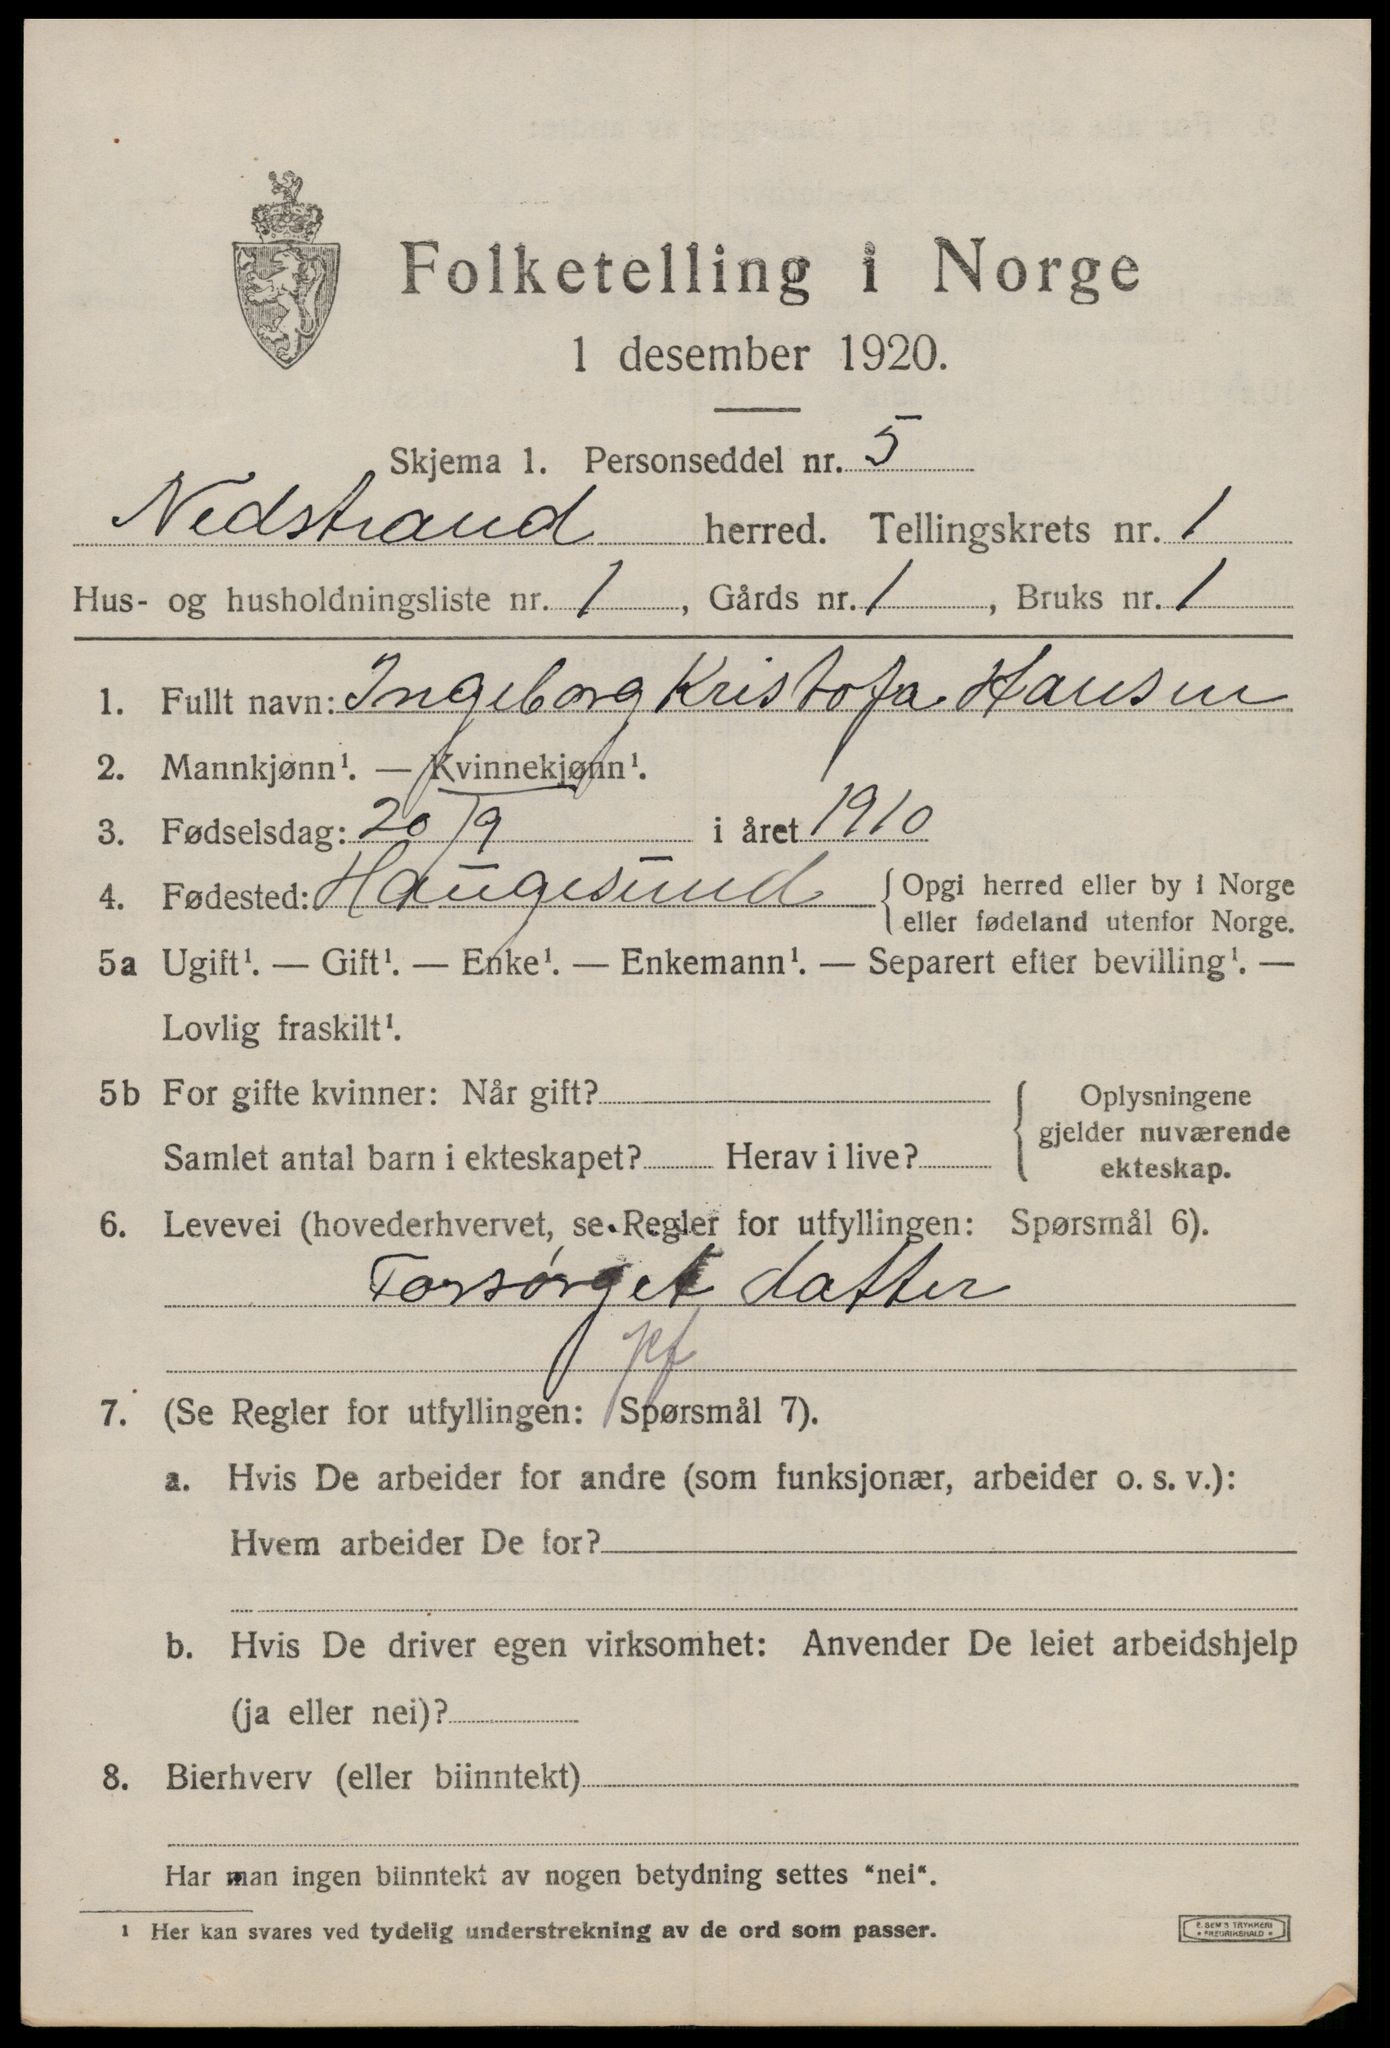 Folketelling i Norge
1 desember 1920.
Skjema 1. Personseddel nr. 5
Nedstrand herred. Tellingskrets nr. 1
Hus- og husholdningsliste nr. 1, Gårds nr. 1, Bruks nr. 1
1. Fullt navn: Ingeborg Kristofa Hansen
2. Mannkjønn¹. — Kvinnekjønn¹.
3. Fødselsdag: 20/9 i året 1910
4. Fødested: Haugesund { Opgi herred eller by i Norge
eller fødeland utenfor Norge.
5a Ugift¹. — Gift¹. — Enke¹. — Enkemann¹. — Separert efter bevilling¹. —
Lovlig fraskilt¹.
5b For gifte kvinner: Når gift? { Oplysningene
gjelder nuværende
Samlet antal barn i ekteskapet? Herav i live? ekteskap.
6. Levevei (hovederhvervet, se Regler for utfyllingen: Spørsmål 6).
Forsørget datter
pf
7. (Se Regler for utfyllingen: Spørsmål 7).
a. Hvis De arbeider for andre (som funksjonær, arbeider o. s. v.):
Hvem arbeider De for?
b. Hvis De driver egen virksomhet: Anvender De leiet arbeidshjelp
(ja eller nei)?
8. Bierhverv (eller biinntekt)
Har man ingen biinntekt av nogen betydning settes "nei".
¹ Her kan svares ved tydelig understrekning av de ord som passer.
E. SEM'S TRYKKERI
* FREDRIKSHALD *